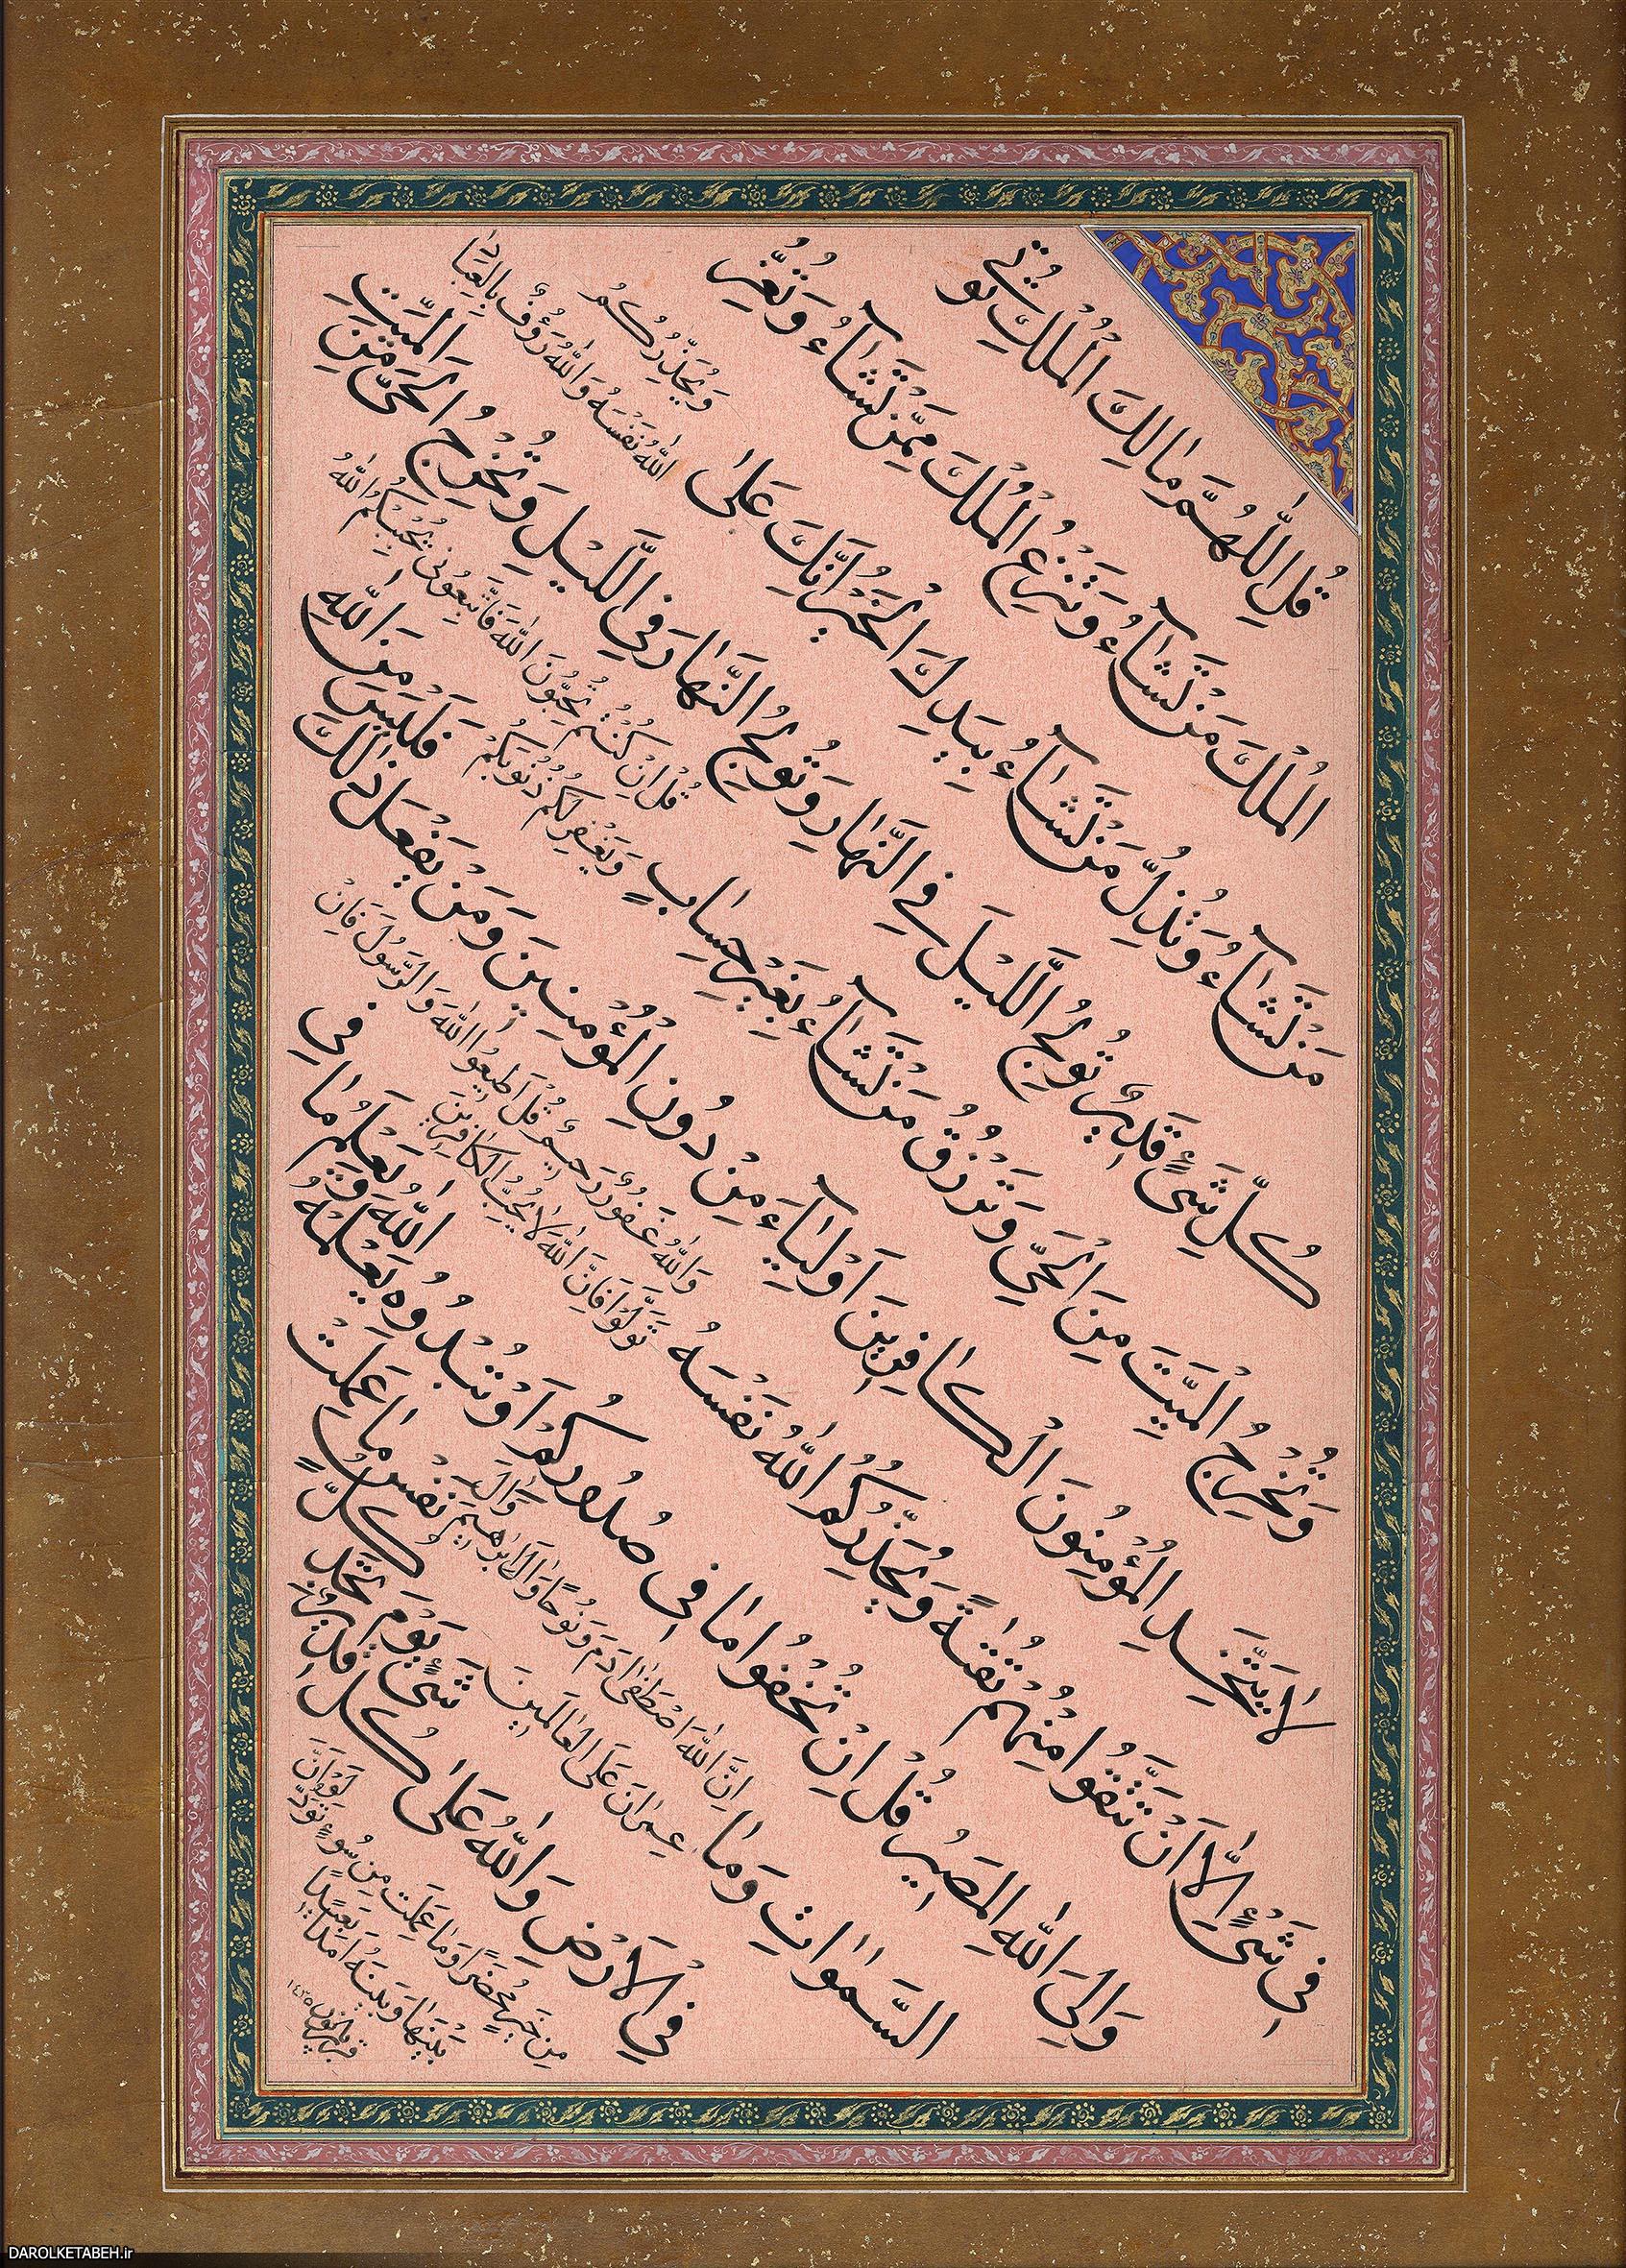 قُلِ اللّٰهُمَّ مَالِكَ الْمُلْكِ تُؤْتِي
الْمُلْكَ مَنْ تَشَآءُ وَتَنْزِعُ الْمُلْكَ مِمَّنْ تَشَآءُ وَتُعِزُّ
مَنْ تَشَآءُ وَتُذِلُّ مَنْ تَشَآءُ بِيَدِكَ الْخَيْرُ اِنَّكَ عَلىٰ
كُلِّ شَىْءٍ قَدِيرٌ تُولِجُ اللَّيْلَ فِي النَّهَارِ وَتُولِجُ النَّهَارَ فِي اللَّيْلِ وَتُخْرِجُ الْحَىَّ مِنَ
الْمَيِّتِ
وَيُحَذِّرُكُمُ
اللّٰهُ نَفْسَهُ وَاللّٰهُ رَؤُفٌ بِالْعِبَادِ
وَتُخْرِجُ الْمَيِّتَ مِنَ الْحَىِّ وَتَرْزُقُ مَنْ تَشَآءُ بِغَيْرِ حِسَابٍ
قُلْ اِنْ كُنْتُمْ تُحِبُّونَ اللّٰهَ فَاتَّبِعُونِى يُحْبِبْكُمُ اللّٰهُ
وَيَغْفِرْ لَكُمْ ذُنُوبَكُمْ
لَا يَتَّخِذِ الْمُؤْمِنُونَ الْكَافِرِينَ اَوْلِيَآءَ مِنْ دُونِ الْمُؤْمِنِينَ وَمَنْ يَفْعَلْ ذٰلِكَ
فَلَيْسَ مِنَ اللّٰهِ
فِى شَىْءٍ اِلَّا اَنْ تَتَّقُوا مِنْهُمْ تُقٰيةً وَيُحَذِّرُكُمُ اللّٰهُ نَفْسَهُ
وَاللّٰهُ غَفُورٌ رَحِيمٌ قُلْ اَطِيعُوا اللّٰهَ وَالرَّسُولَ فَاِنْ
تَوَلَّوْا فَاِنَّ اللّٰهَ لَا يُحِبُّ الْكَافِرِينَ
وَاِلَى اللّٰهِ الْمَصِيرُ قُلْ اِنْ تُخْفُوا مَا فِى صُدُورِكُمْ اَوْ تُبْدُوهُ يَعْلَمْهُ
اللّٰهُ وَيَعْلَمُ مَا فِى
السَّمٰوَاتِ وَمَا
اِنَّ اللّٰهَ اصْطَفىٰ ادَمَ وَنُوحًا وَالَ اِبْرٰهِيمَ وَالَ
عِمْرَانَ عَلَى الْعَالَمِينَ
فِي الْاَرْضِ وَاللّٰهُ عَلىٰ كُلِّ شَىْءٍ قَدِيرٌ
يَوْمَ تَجِدُ كُلُّ
نَفْسٍ مَا عَمِلَتْ
مِنْ خَيْرٍ مُحْضَرًا وَمَا عَمِلَتْ مِنْ سُوءٍ تَوَدُّ لَوْ اَنَّ
بَيْنَهَا وَبَيْنَهُ اَمَدًا بَعِيدًا
۱۴۳۵
DAROLKETABEH.ir